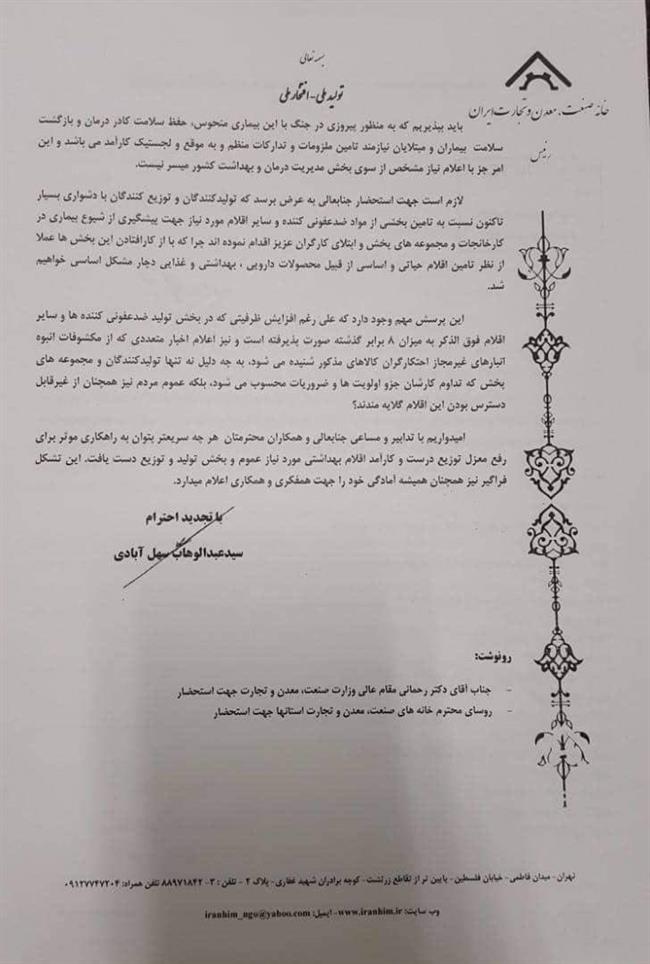 بسمه تعالی
تولید ملی - افتخار ملی
خانه صنعت، معدن و تجارت ایران
رئیس
باید بپذیریم که به منظور پیروزی در جنگ با این بیماری منحوس، حفظ سلامت کادر درمان و بازگشت
سلامت بیماران و مبتلایان نیازمند تامین ملزومات و تدارکات منظم و به موقع و لجستیک کارآمد می باشد و این
امر جز با اعلام نیاز مشخص از سوی بخش مدیریت درمان و بهداشت کشور میسر نیست.
لازم است جهت استحضار جنابعالی به عرض برسد که تولیدکنندگان و توزیع کنندگان با دشواری بسیار
تاکنون نسبت به تامین بخشی از مواد ضدعفونی کننده و سایر اقلام مورد نیاز جهت پیشگیری از شیوع بیماری در
کارخانجات و مجموعه های پخش و ابتلای کارگران عزیز اقدام نموده اند چرا که با از کارافتادن این بخش ها عملا
از نظر تامین اقلام حیاتی و اساسی از قبیل محصولات دارویی ، بهداشتی و غذایی دچار مشکل اساسی خواهیم
شد.
این پرسش مهم وجود دارد که علی رغم افزایش ظرفیتی که در بخش تولید ضدعفونی کننده ها و سایر
اقلام فوق الذکر به میزان ۸ برابر گذشته صورت پذیرفته است و نیز اعلام اخبار متعددی که از مکشوفات انبوه
انبارهای غیرمجاز احتکارگران کالاهای مذکور شنیده می شود، به چه دلیل نه تنها تولیدکنندگان و مجموعه های
پخش که تداوم کارشان جزو اولویت ها و ضروریات محسوب می شود، بلکه عموم مردم نیز همچنان از غیرقابل
دسترس بودن این اقلام گلایه مندند؟
امیدواریم با تدابیر و مساعی جنابعالی و همکاران محترمتان هر چه سریعتر بتوان به راهکاری موثر برای
رفع معزل توزیع درست و کارآمد اقلام بهداشتی مورد نیاز عموم و بخش تولید و توزیع دست یافت. این تشکل
فراگیر نیز همچنان همیشه آمادگی خود را جهت همفکری و همکاری اعلام میدارد.
با تجدید احترام
سیدعبدالوهاب سهل آبادی
رونوشت:
- جناب آقای دکتر رحمانی مقام عالی وزارت صنعت، معدن و تجارت جهت استحضار
- روسای محترم خانه های صنعت، معدن و تجارت استانها جهت استحضار
تهران- میدان فاطمی- خیابان فلسطین- پایین تر از تقاطع زرتشت- کوچه برادران شهید غفاری- پلاک ۲ - تلفن : ۳- ۸۸۹۷۱۸۴۲ تلفن همراه: ۰۹۱۲۷۷۴۷۲۰۴
وب سایت: www.iranhim.ir- ایمیل: iranhim_ngo@yahoo.com